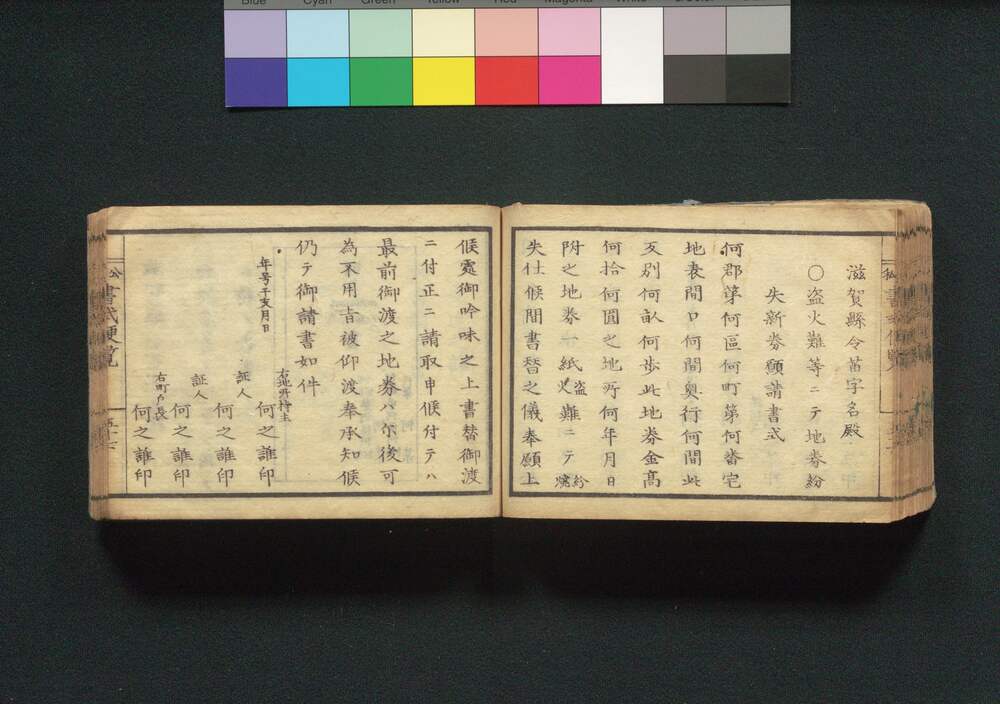 Blue Cyan Green Yellow Red Magenta White
滋賀縣令苗字名殿
〇盗火難等ニテ地券紛
失新券願請書式
何郡第何區何町第何畨宅
地表間口何間奥行何間此
反別何畝何歩此地券金髙
何拾何圓之地所何年月日
附之地券一紙盗火難ニテ紛燒
失仕候間書替之儀奉願上
候處御吟味之上書替御渡
ニ付正ニ請取申候付テハ
最前御渡之地券ハ尓後可
為不用旨被仰渡奉承知候
仍テ御請書如件
年号干支月日
右地所持主
何之誰印
証人
何之誰印
証人
何之誰印
右町戸長
何之誰印
公書式便覧